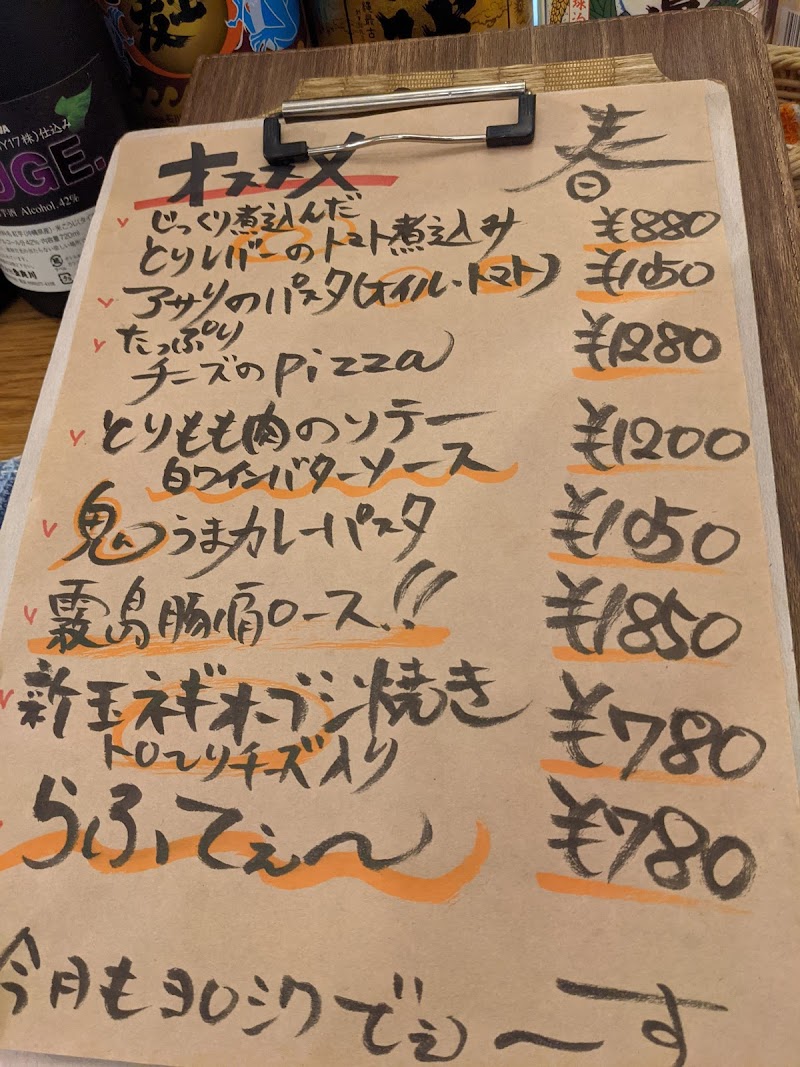 オススメ 春
じっくり煮込んだ
とりレバーのトマト煮込み ¥880
アサリのパスタ(オイル・トマト) ¥1050
たっぷり
チーズのpizza ¥1280
とりもも肉のソテー ¥1200
白ワインバターソース
鬼うまカレーパスタ ¥1050
霧島豚肩ロース!! ¥1850
新玉ネギオーブン焼き ¥780
トロ〜リチーズ入り
らふてぇ〜 ¥780
今月もヨロシクでぇ〜す
Y17株)仕込み
UGE.
Alcohol. 42%